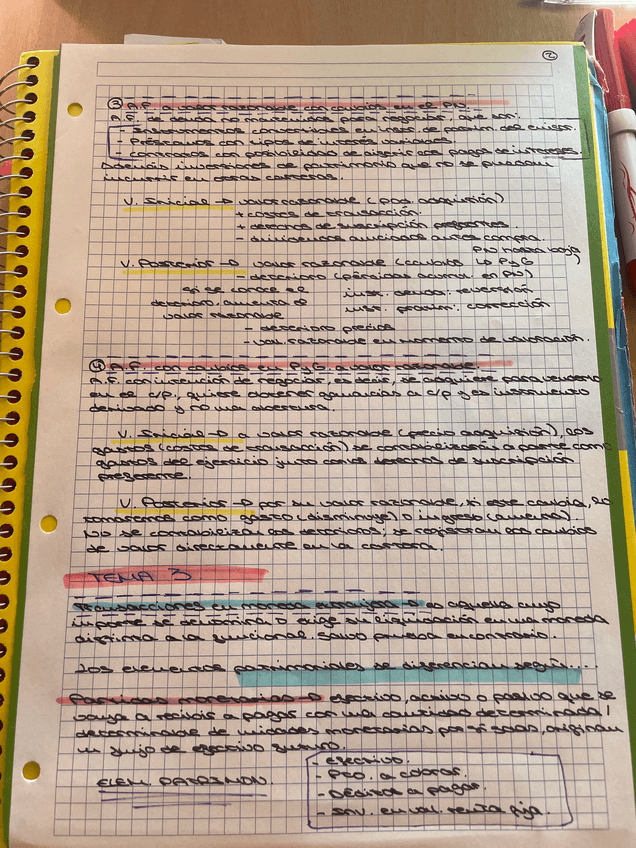 2
③ A.F. a valor razonable con cambios en el PN.
A.F. de deuda no mantenidos para negociar, que son:
- Instrumentos convertibles en inst. de patrim. del emisor.
- Préstamos con tipos de interés variables.
- Contratos con posibilidad de pagos de intereses.
inversiones de patrimonio que no se puedan
incluir en otras carteras.
V. Inicial → valor razonable (pco. adquisición)
+ costes de transacción.
+ derechos de suscripción preferentes.
- dividendos antes compra.
V. Posterior → valor razonable (cambios ↳ PyG)
PN hasta baja
- deterioro (pérdidas acumul. en PN)
si se conoce el
deterioro, aumenta el
valor razonable
inst. deuda: reversión
inst. patrim: corrección
- deterioro previos
- val. razonable en momento de valoración.
④ A.F. con cambios en PyG a valor razonable.
A.F. con intención de negociar, es decir, se adquiere para venderlo
en el c/p, quiere obtener ganancias a c/p y es instrumento
derivado y no una cobertura.
V. Inicial → a valor razonable (precio adquisición), los
gastos (costes de transacción) se contabilizarán a parte como
gastos del ejercicio junto con los derechos de suscripción
preferente.
V. Posterior → por su valor razonable, si este cambia, lo
tomaremos como gasto (disminuye) o ingreso (aumenta).
No se contabilizan los deterioros; se registran los cambios
de valor directamente en la cartera.
TEMA 3
Transacciones en moneda extranjera → es aquella cuyo
importe se denomina o exige su liquidación en una moneda
distinta a la funcional. Salvo prueba en contrario.
Los elementos patrimoniales se diferencian según....
Partidas monetarias → efectivo, activo o pasivo que se
vaya a recibir o pagar con una cantidad determinada /
determinable de unidades monetarias, originan
un flujo de efectivo futuro.
ELEM. PATRIMON.
- efectivo.
- Pco. a cobrar.
- Débitos a pagar.
- Inv. en val. renta fija.